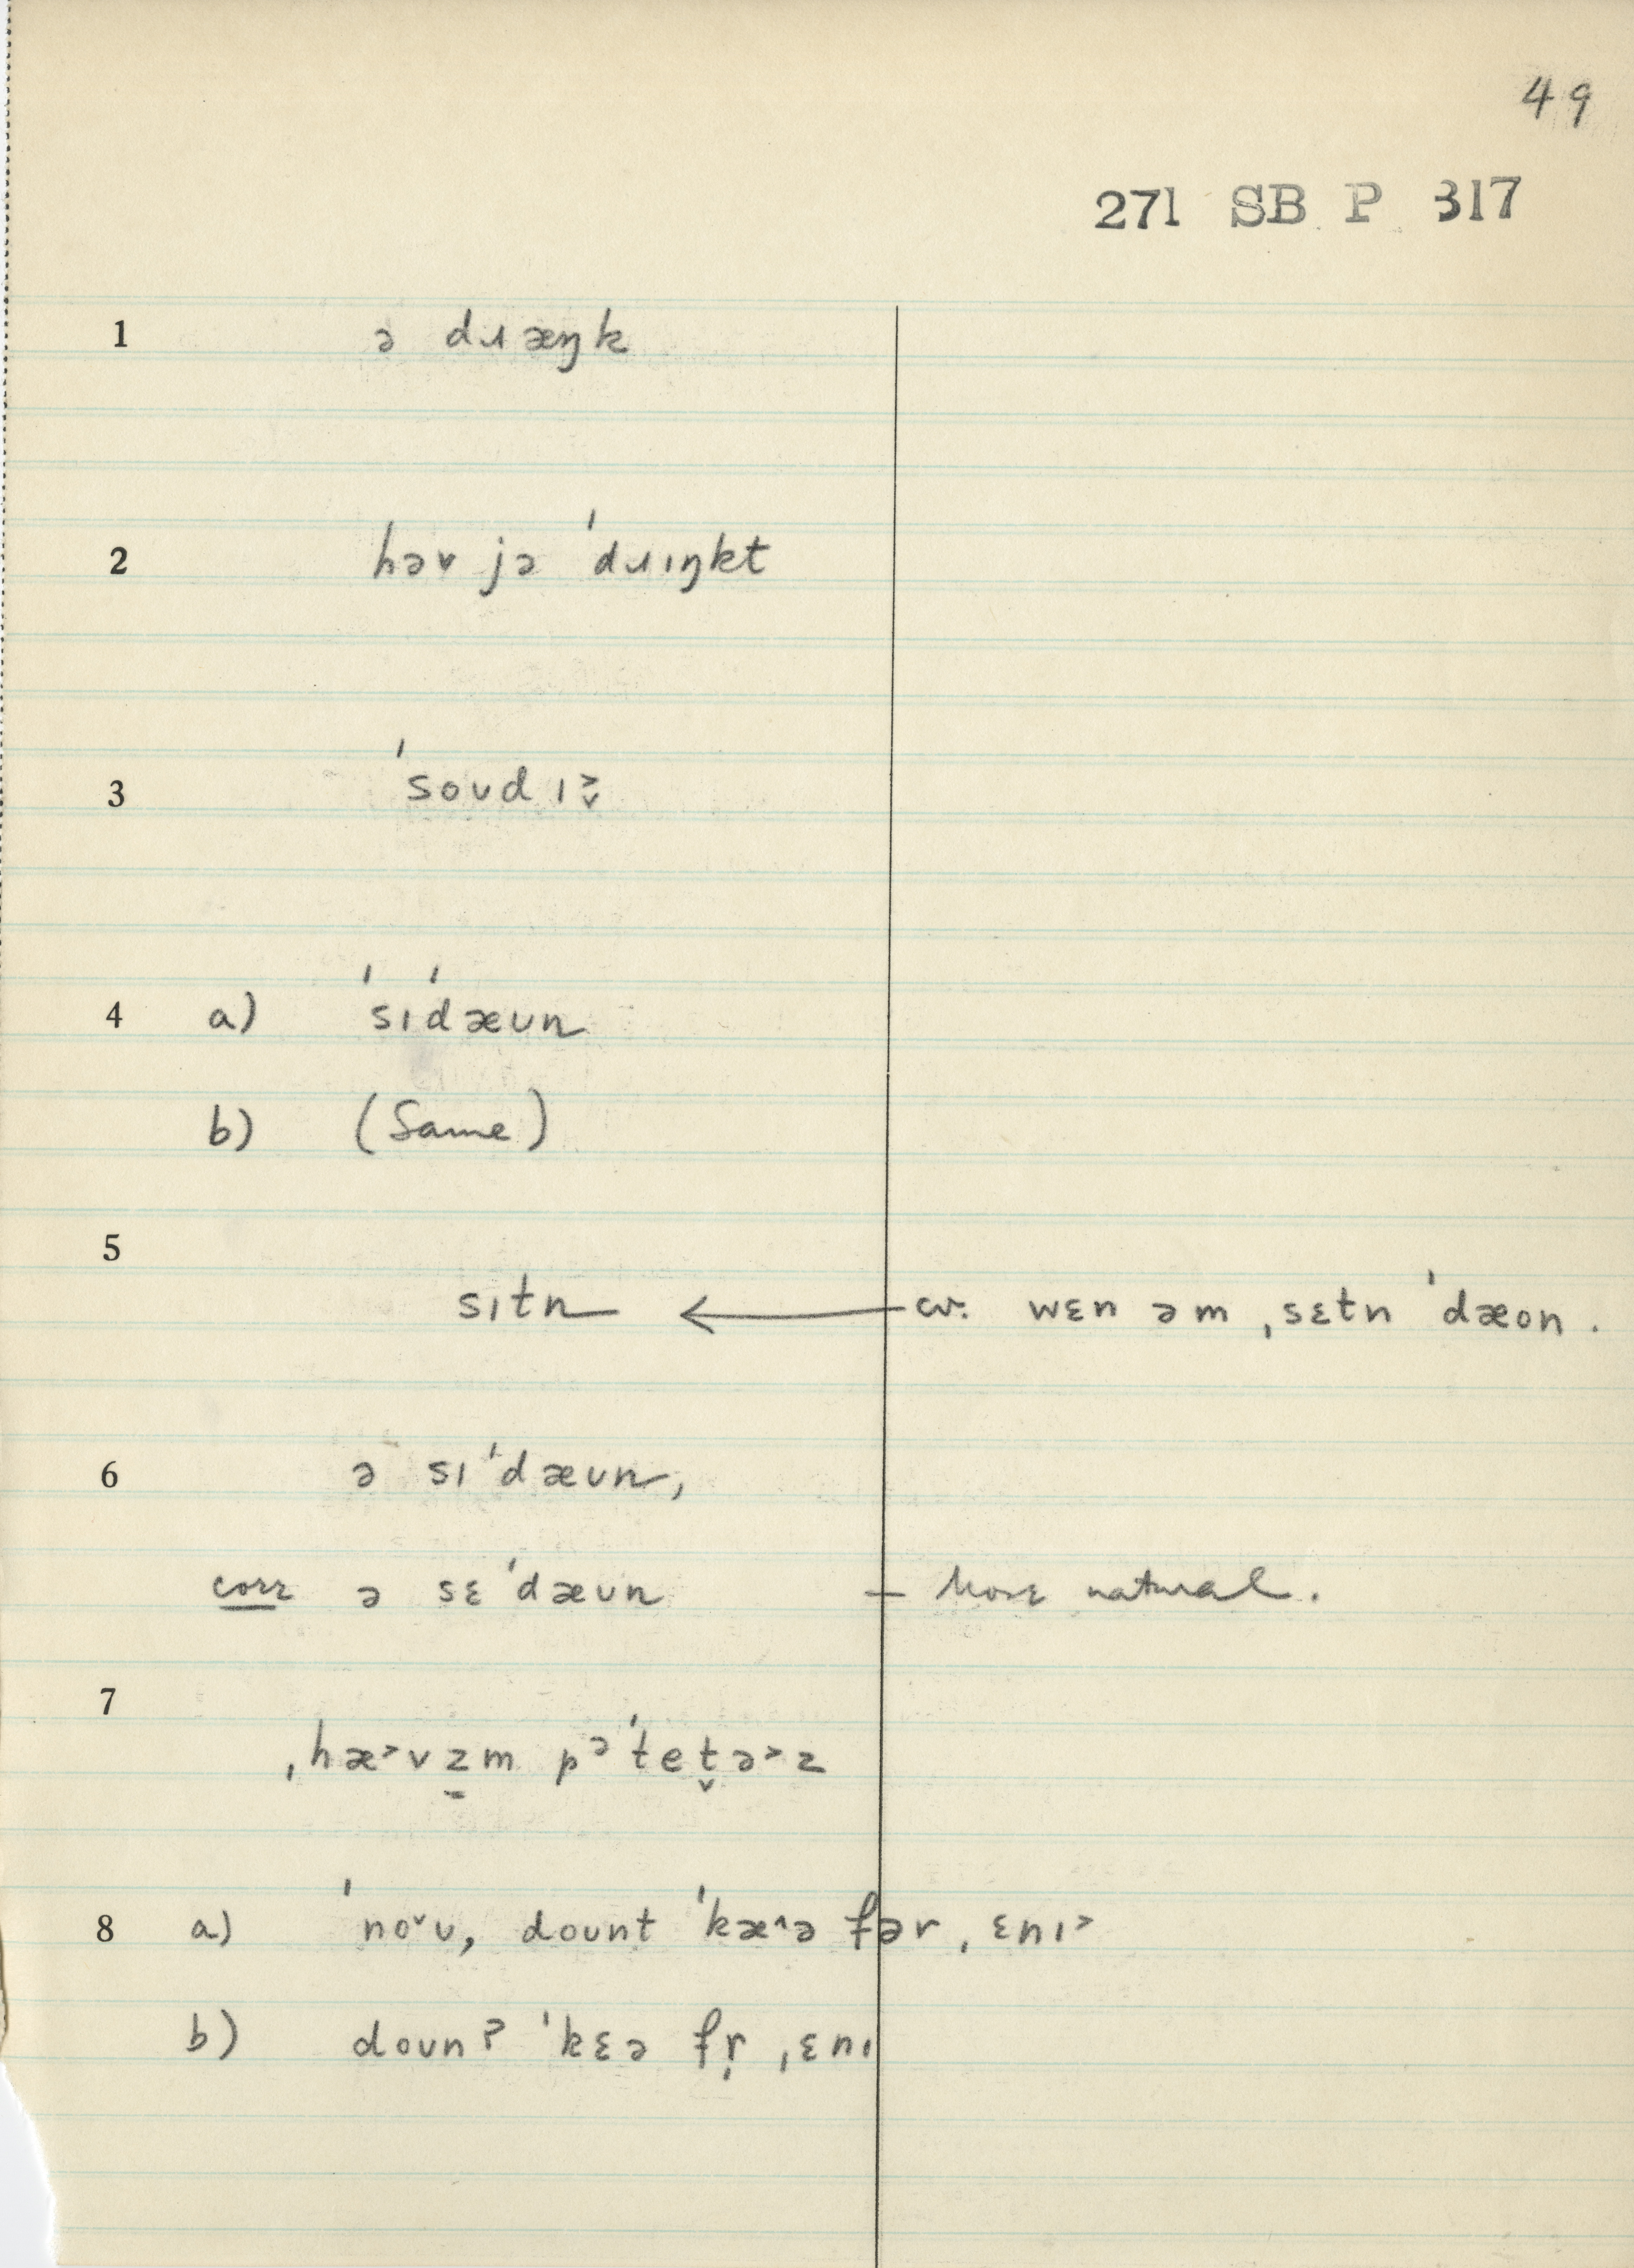 49
271 SB P 317
1 ə dɹæŋk
2 həv jə ˈdɹɪŋkt
3 ˈsoʊdɪ˃˅
4 a) ˈsɪˈdæʊn
b) (Same)
5
sɪtn ← cv. wɛn əm ˌsɛtn ˈdæon.
6 ə sɪˈdæʊn,
corr ə sɛˈdæʊn – More natural.
7
ˌhæ˃vz̠m pᵊˈtet̬ə˃z
8 a) ˈno˅ʊ, doʊnt ˈkæ˄ə fər ˌɛnɪ˃
b) doʊnʔ ˈkɛə fr̩ ˌɛnɪ